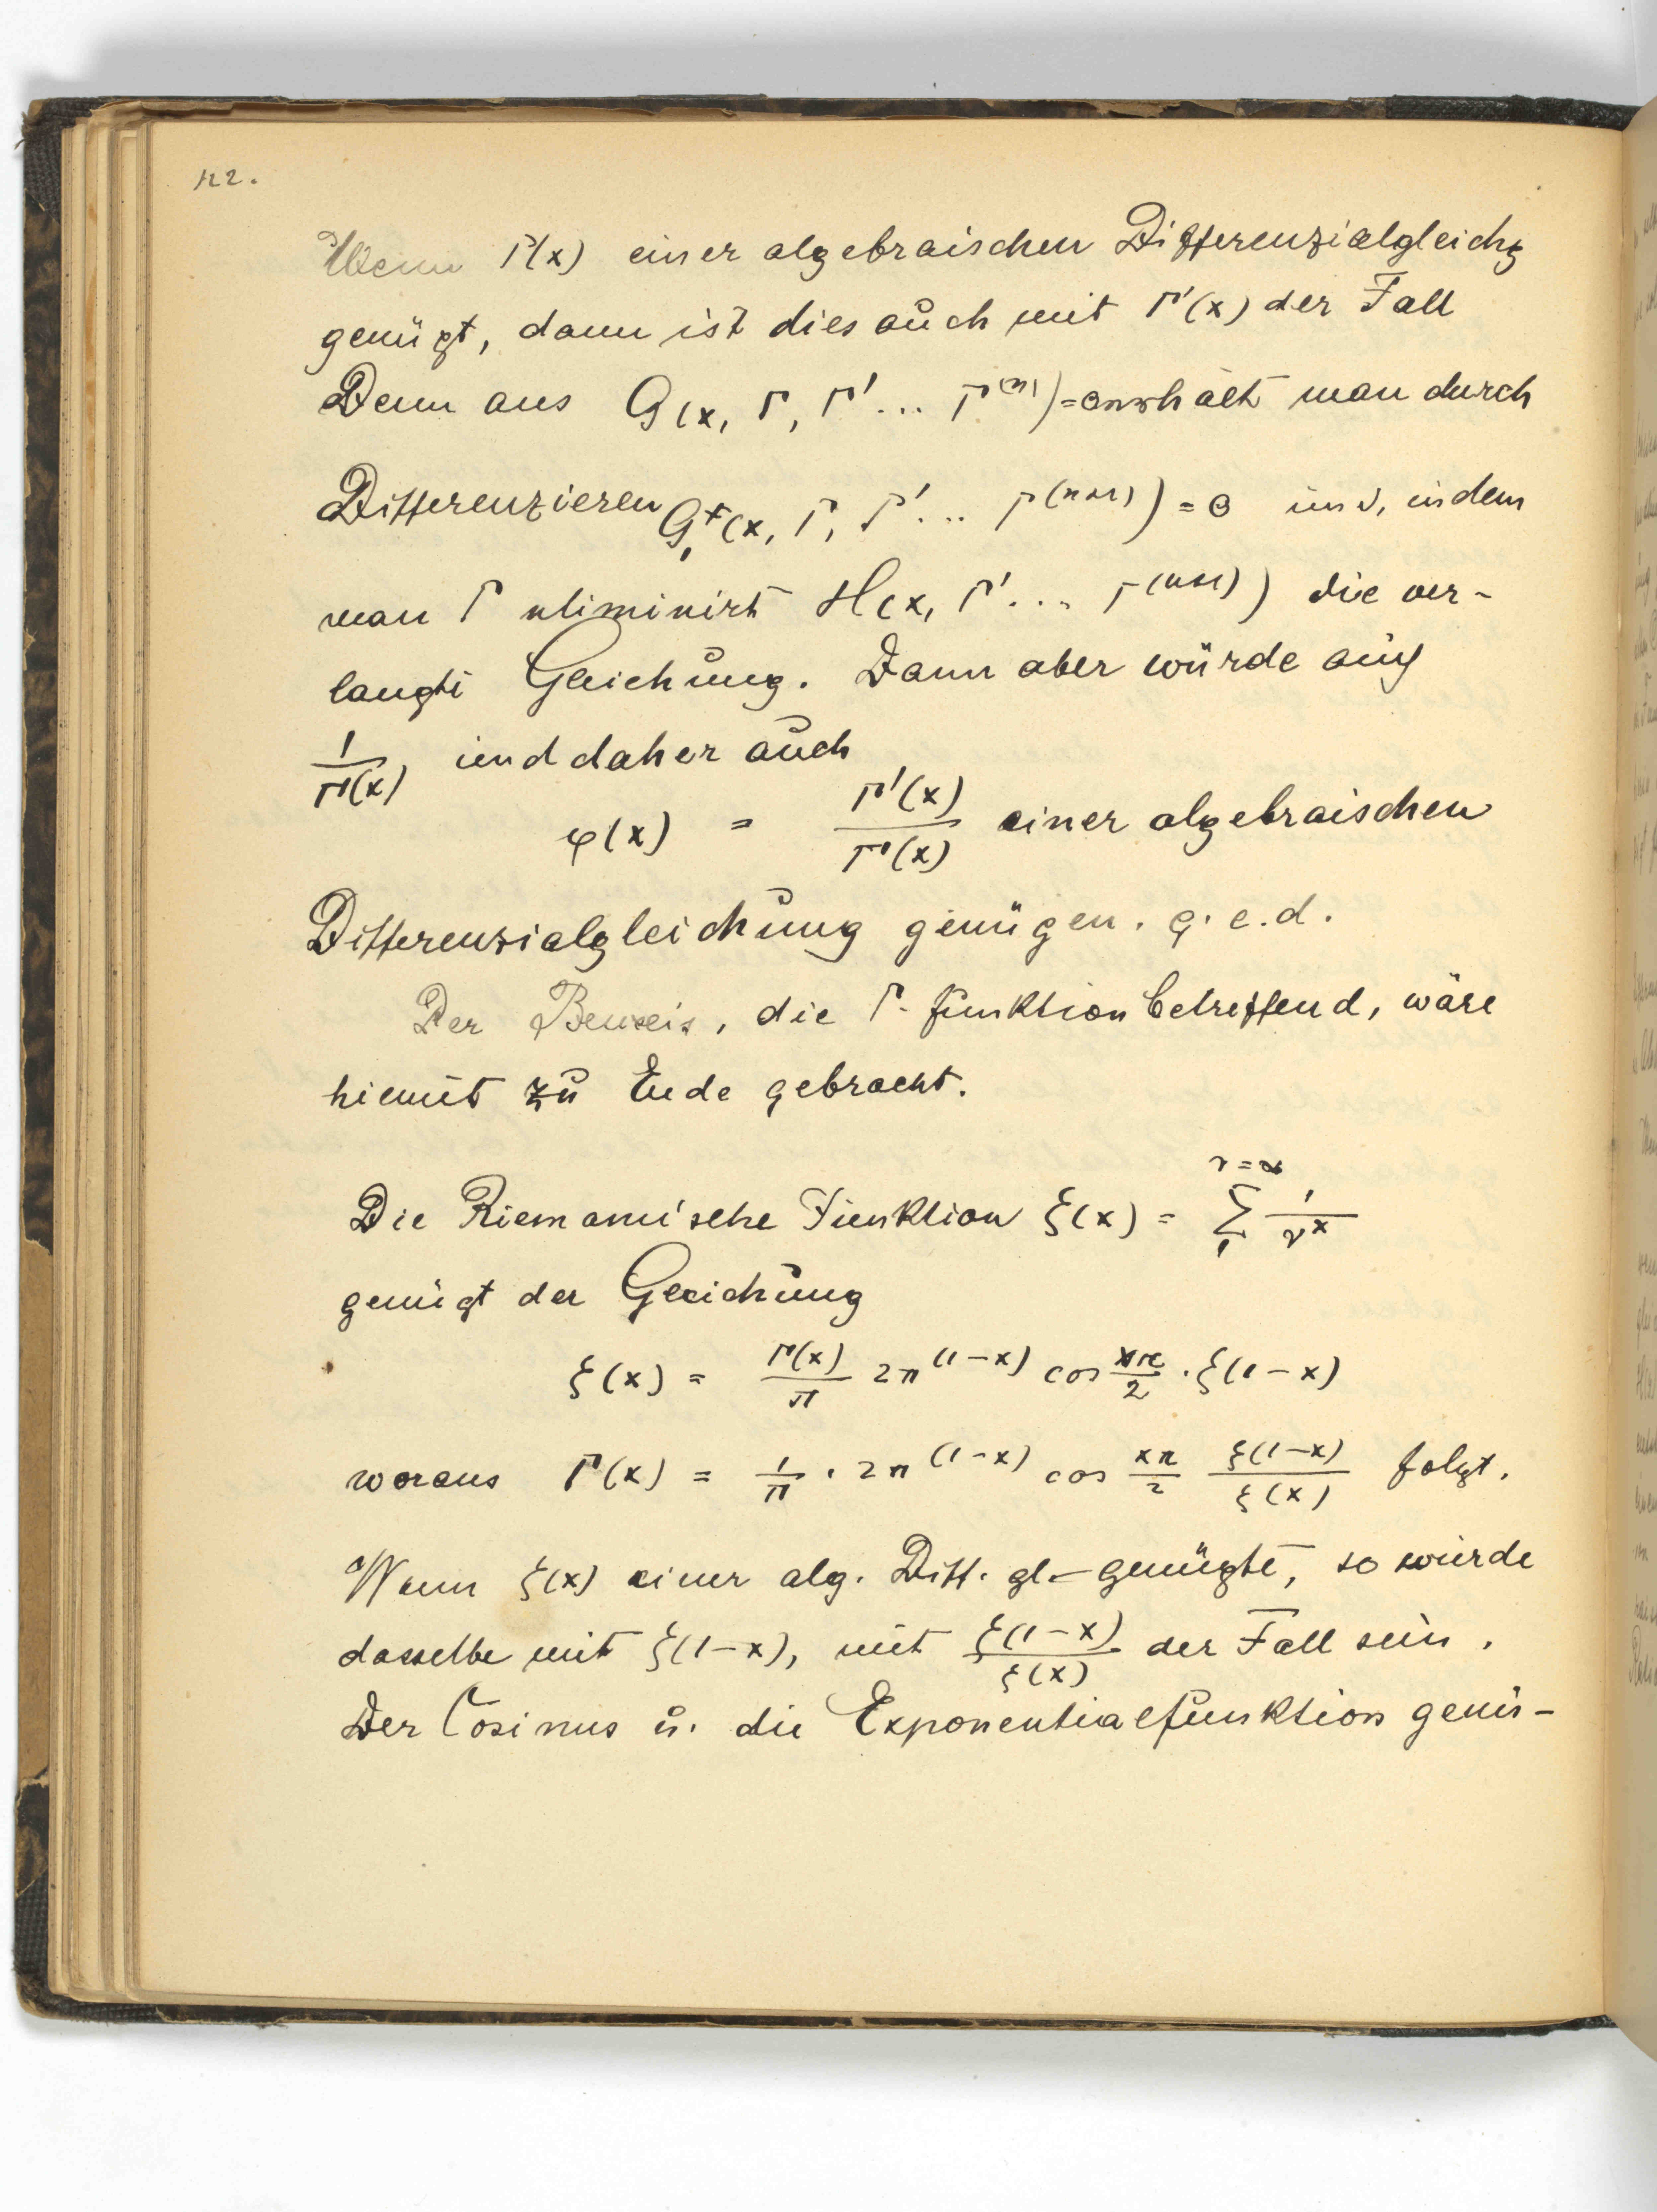 122.
Wenn Γ(x) einer algebraischen Differenzialgleichg
genügt, dann ist dies auch mit Γ'(x) der Fall
Denn aus G(x, Γ, Γ' ... Γ⁽ⁿ⁾) = 0 erhält man durch
Differenzieren G₁(x, Γ, Γ' ... Γ⁽ⁿ⁺¹⁾) = 0 und, indem
man Γ eliminirt H(x, Γ' ... Γ⁽ⁿ⁺¹⁾) die ver-
langte Gleichung. Dann aber würde auch
1/Γ(x) und daher auch
φ(x) = Γ'(x)/Γ(x) einer algebraischen
Differenzialgleichung genügen. q. e. d.
Der Beweis, die Γ-funktion betreffend, wäre
hiemit zu Ende gebracht.
Die Riemann'sche Funktion ξ(x) = ∑₁^{ν=∞} 1/νˣ
genügt der Gleichung
ξ(x) = Γ(x)/π 2π⁽¹⁻ˣ⁾ cos xπ/2 · ξ(1-x)
woraus Γ(x) = 1/π · 2π⁽¹⁻ˣ⁾ cos xπ/2 ξ(1-x)/ξ(x) folgt.
Wenn ξ(x) einer alg. Diff. gl- genügte, so würde
dasselbe mit ξ(1-x), mit ξ(1-x)/ξ(x) der Fall sein.
Der Cosinus u. die Exponentialfunktion genü-